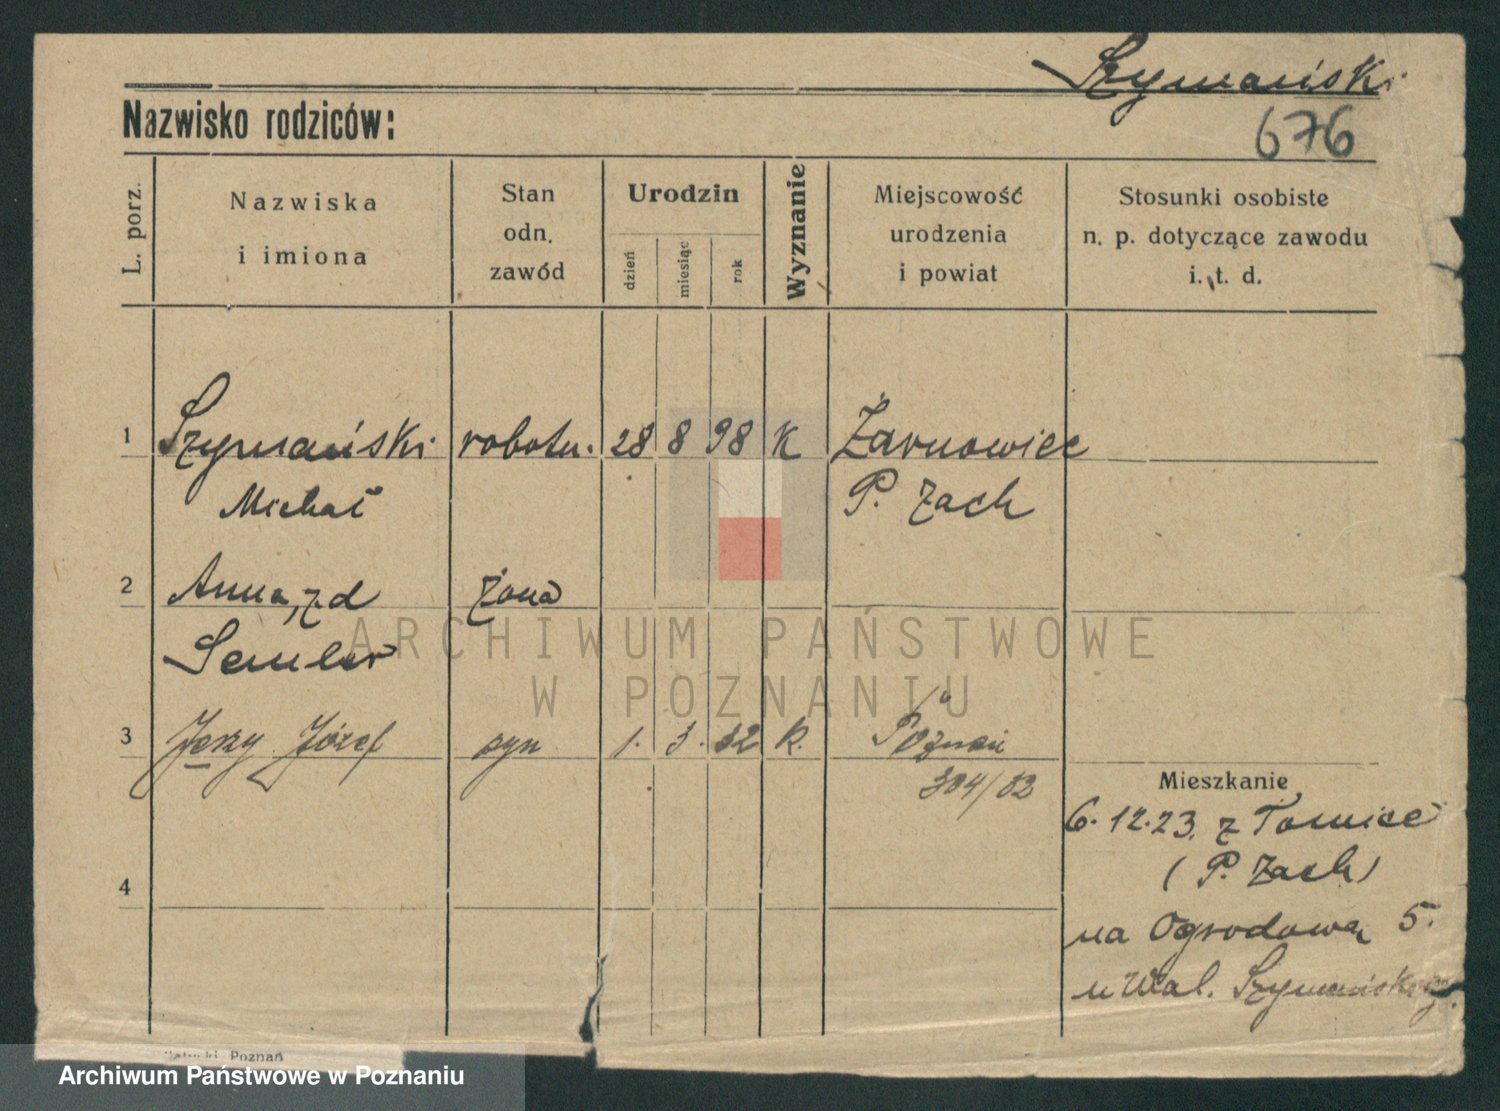 Szymański
Nazwisko rodziców:
676
L. porz.
Nazwiska
i imiona
Stan
odn.
zawód
Urodzin
dzień
miesiąc
rok
Wyznanie
Miejscowość
urodzenia
i powiat
Stosunki osobiste
n. p. dotyczące zawodu
i. t. d.
1 Szymański robotn. 28 8 98 K Żarnowiec
Michał P. Zach
2 Anna, z d żona
Semler
3 Jerzy Józef syn 1. 3. 32 k. Poznań
304/32
Mieszkanie
6.12.23. z Tomice
(P. Zach)
4
na Ogrodową 5.
u Wal. Szymańskiej.
Poznań
ARCHIWUM PAŃSTWOWE
W POZNANIU
Archiwum Państwowe w Poznaniu